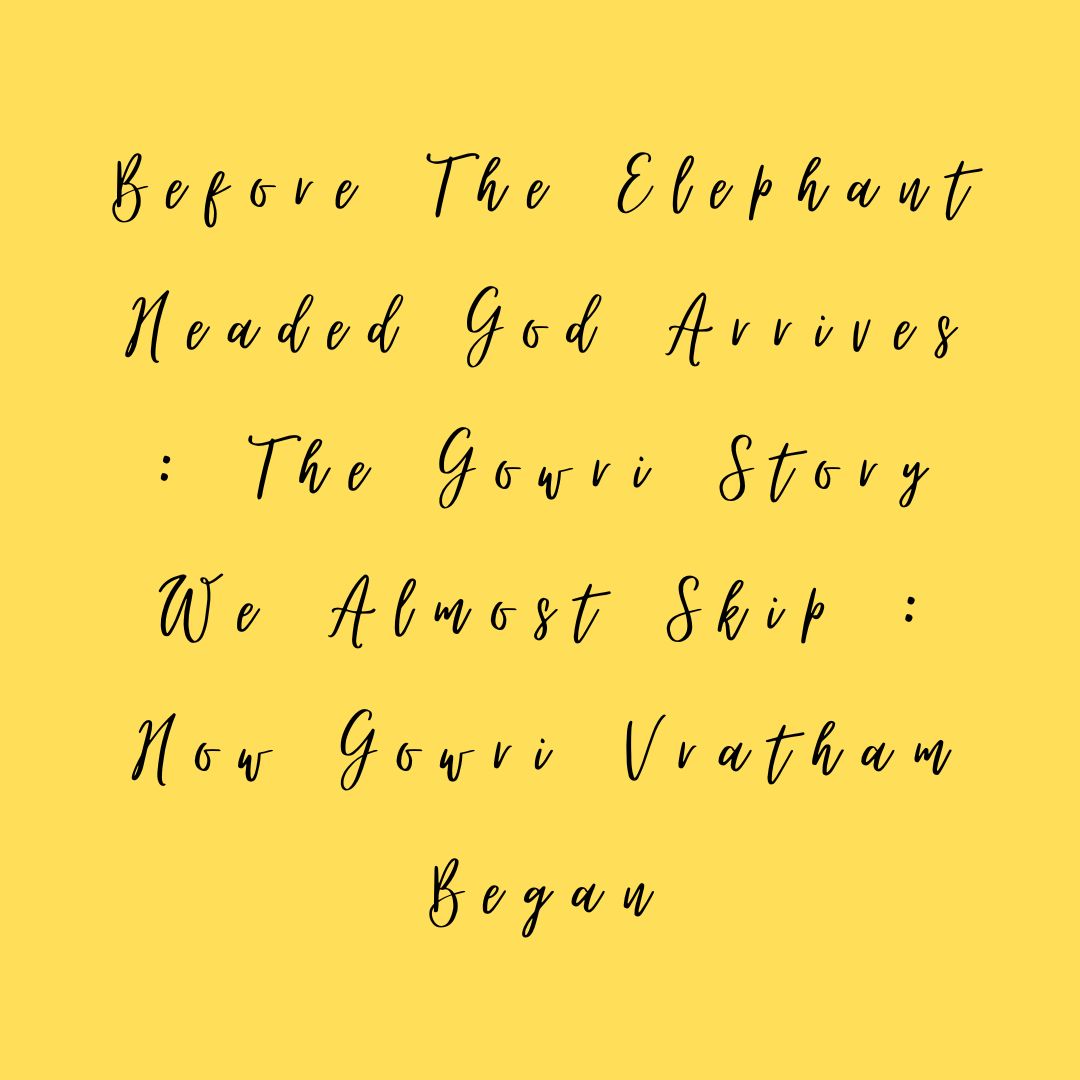 Before The Elephant
Headed God Arrives
: The Gowri Story
We Almost Skip :
How Gowri Vratham
Began